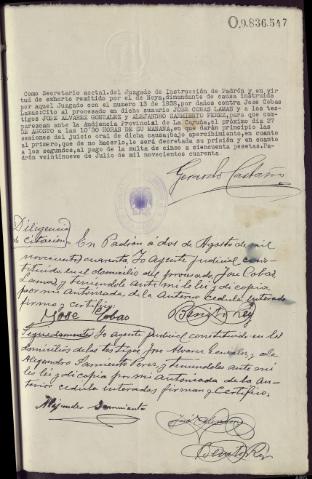 O.9.836.547
Como Secretario acctal. del Juzgado de Instrucción de Padrón y en vir-
tud de exhorto remitido por el de Noya, dimanante de causa instruida
por aquel Juzgado con el numero 13 de 1938, por daños contra Jose Cobas
Lamas cito al procesado en dicho sumario JOSE COBAS LAMAS y a los tes-
tigos JOSE ALVAREZ GONZALEZ Y ALEJANDRO SARMIENTO PEREZ, para que com-
parezcan ante la Audiencia Provincial de La Coruña, el próximo dia 27
DE AGOSTO a las 10'30 HORAS DE SU MAÑANA, en que darán principio las
sesiones del juicio oral de dicha causa; bajo apercibimiento, en cuanto
al primero, que de no hacerlo, le será decretada su prisión y en cuanto
a los segundos, al pago de la multa de cinco a cincuenta pesetas. Pa-
drón veintinueve de Julio de mil novecientos cuarenta
Gerardo Castaño
Diligencia
de citación En Padrón á dos de Agosto de mil
novecientos cuarenta. Yo Agente Judicial cons-
tituido en el domicilio del procesado Jose Cobas
Lamas y teniendole ante mi le lei y di copia
por mi Autorizada, de la Anterior cedula enterado
firma y certifico.
Jose Cobas
Benito Rey
Seguidamente Yo Agente Judicial constituido en los
domicilios de los testigos Jose Alvarez Gonzalez, y de
Alejandro Sarmiento Perez y teniendoles ante mi
les lei y di copia por mi Autorizada de la An-
terior cedula enterados firman y Certifico.
Alejandro Sarmiento
José Alvarez
Benito Rey